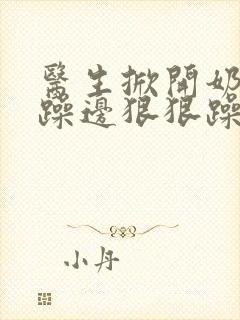 醫生掀開奶
躁邊狠狠躁
小丹